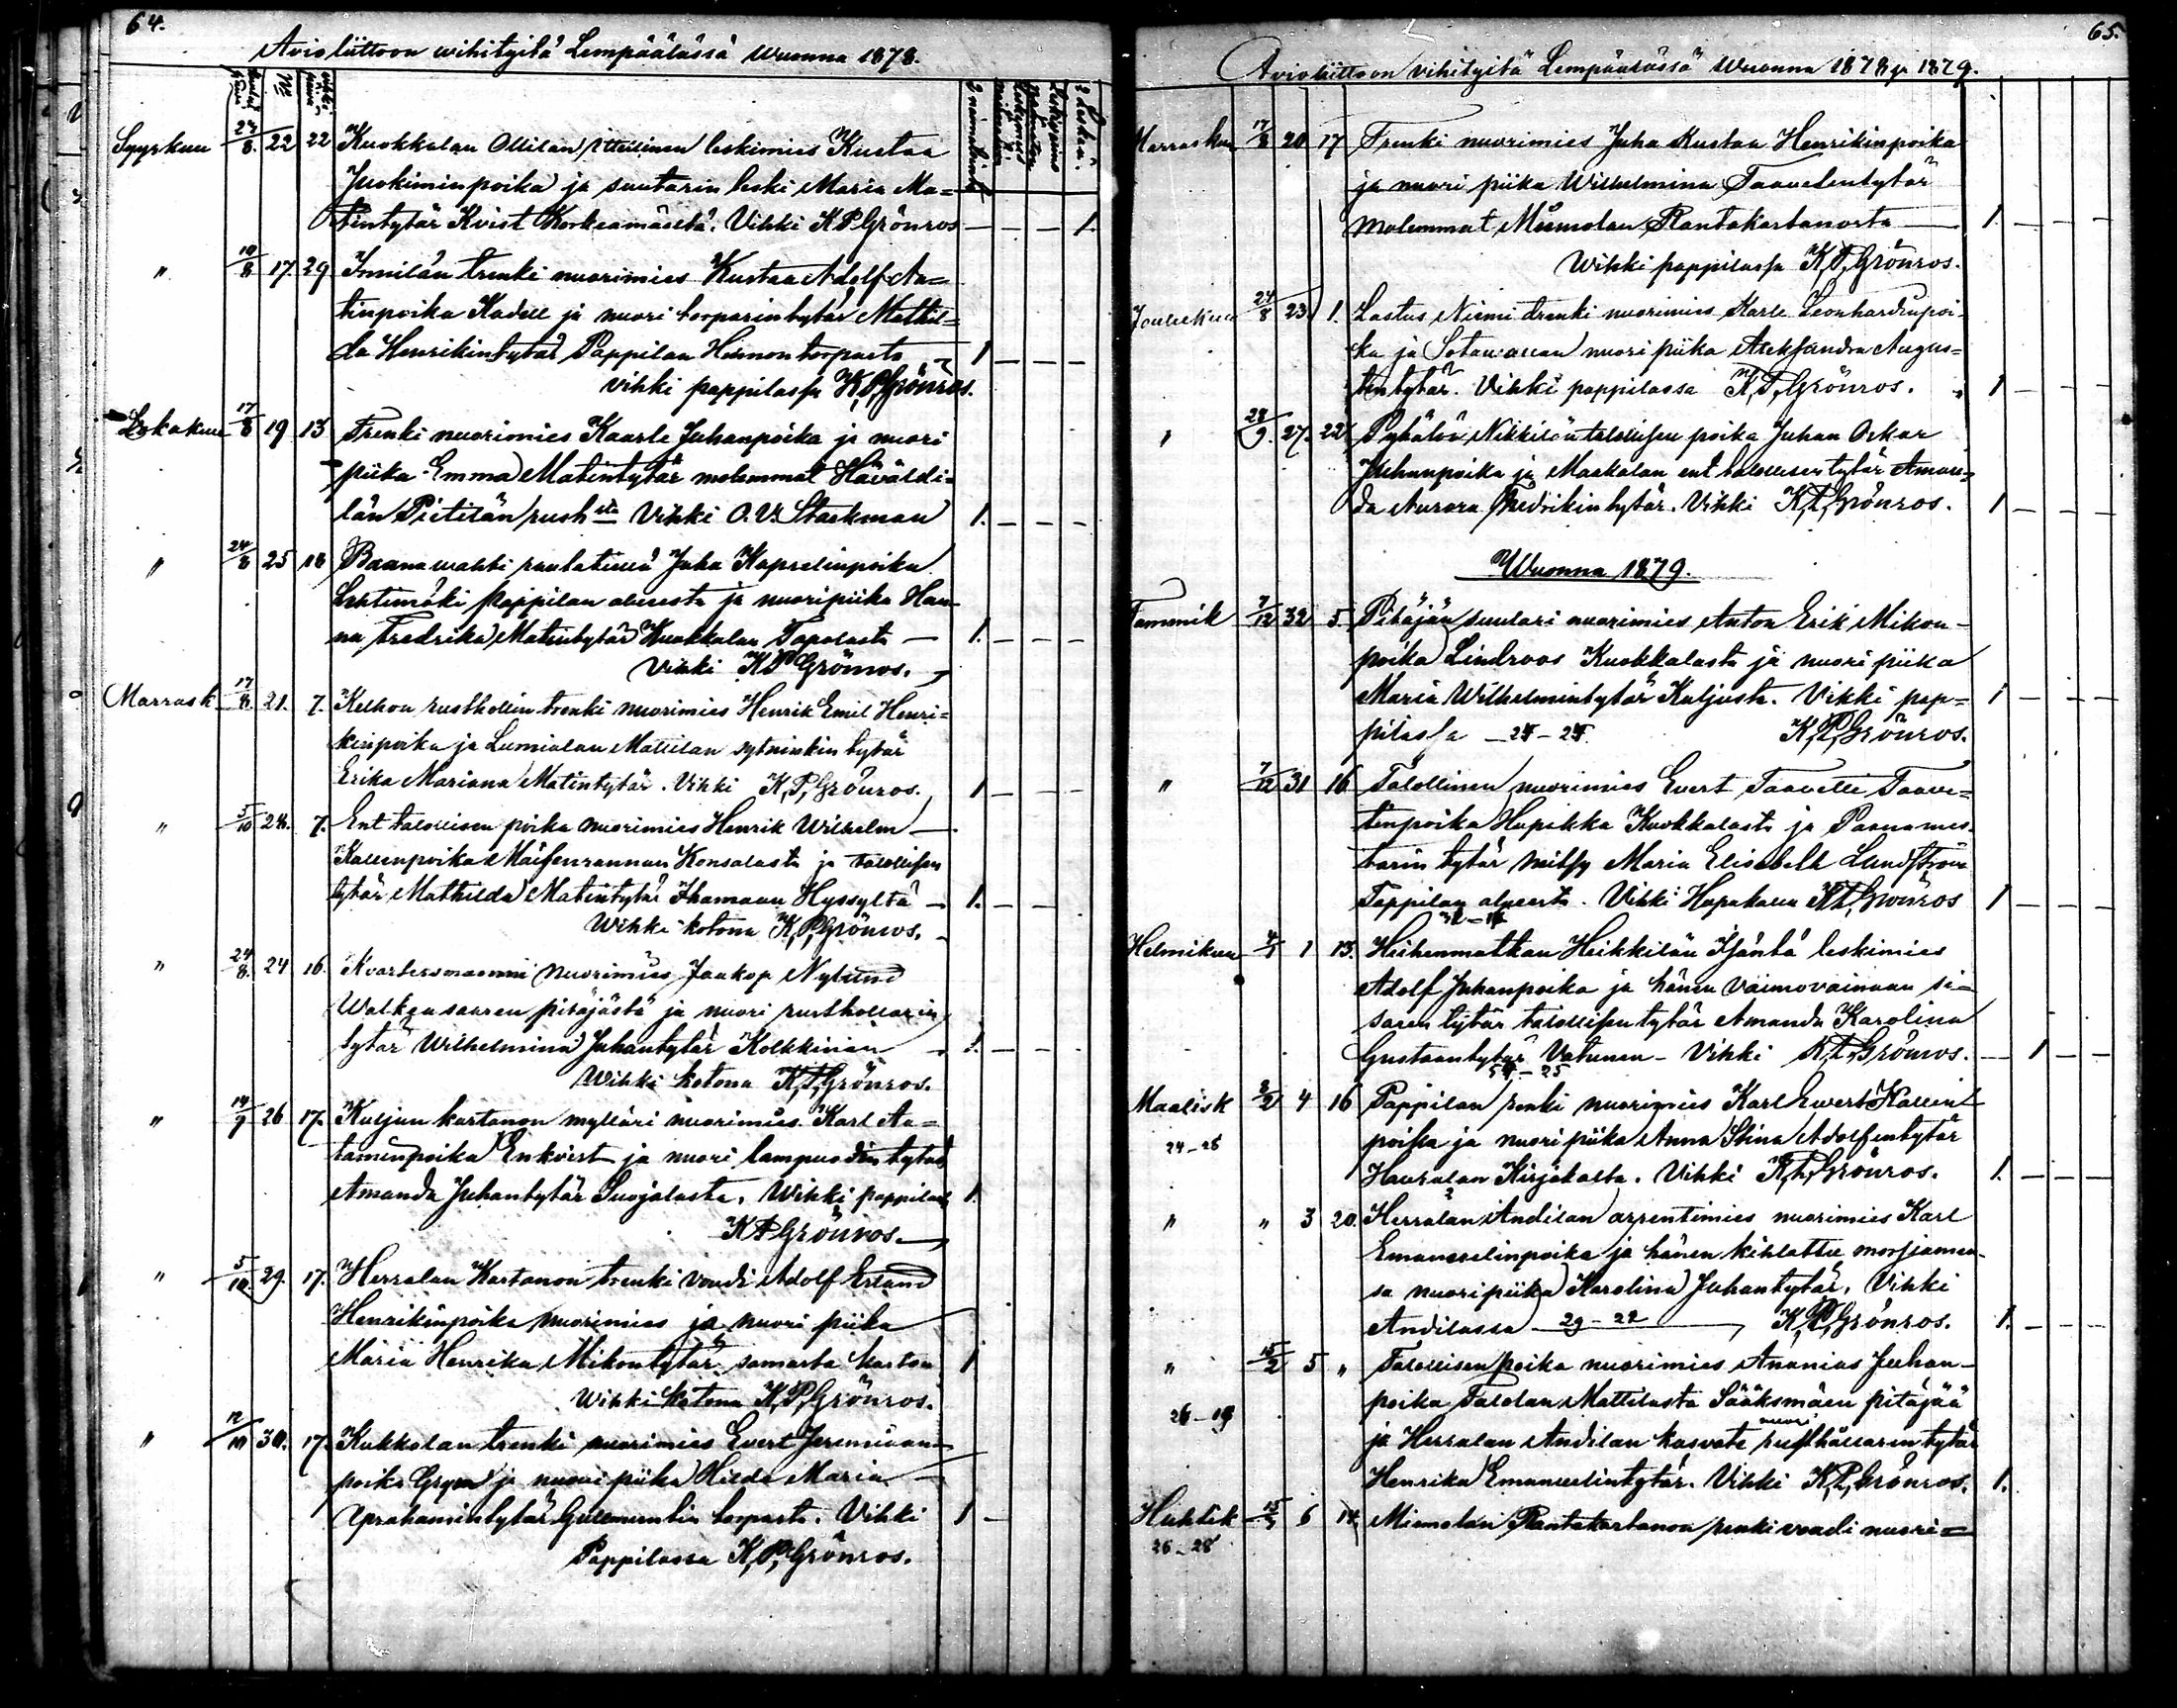 64.
Avioliittoon wihityitä Lempäälässä Wuonna 1878.
Syyskuu 23/8. 22 22 Kuokkalan Ollilan itsellinen leskimies Kustaa
Juokiminpoika ja suutarin leski Maria Ma=
tintytär Kvist Korkiamäeltä. Vihki K P Grönros — — — 1.
" 10/8 17 29 Innilän trenki nuorimies Kustaa Adolf An=
tinpoika Kadell ja nuori torparintytär Mathil=
da Henrikintytär Pappilan torpasta 1 — — —
vihki pappilassa K,P,Grönros.
Lokakuu 17/8 19 13 Trenki nuorimies Kaarle Juhanpoika ja nuori
piika Emma Matintytär molemmat Häväldi=
län Pietilän rusth sta Vihki O. V. Stackman 1. — — —
" 24/8 25 18 Baana wahti Juha Kaprelinpoika
Lehtimäki Pappilan alueesta ja nuoripiika Han=
na Fredrika Matintytär Kuokkalan Tapolasta — 1. — — —
Vihki K P Grönros.
Marrask 17/8. 21. 7. Kelhon rusthollin trenki nuorimies Henrik Emil Henri=
kinpoika ja Lumialan Mattilan sytninkin tytär
Erika Mariana Matintytär. Vihki K,P,Grönros. 1 — — —
" 5/10 28. 7. Ent talollisen poika nuorimies Henrik Wilhelm —
Kallenpoika Maisenrannan Konsalasta ja talollisen
tytär Mathilda Matintytär Ihamaan Hyssyltä — 1. — —
Wihki kotona K,P,Grönros.
" 24/8. 24 16. Kvartersmanni nuorimies Jaakop Nylund
Walkeasaaren pitäjästä ja nuori rusthollarin
tytär Wilhelmina Juhantytär Kolkkinen — 1. — — —
Wihki kotona K,P,Grönros.
" 14/9 26 17. Kuljun kartanon mylläri nuorimies Karl Aa=
taminpoika Enkvist ja nuori lampuodin tytär
Amanda Juhantytär Suojalasta. Wihki pappilas 1.
K P Grönros.
" 5/10 29. 17. Herralan Kartanon trenki voudi Adolf Erland
Henrikinpoika nuorimies ja nuori piika
Maria Henrika Mikontytär samasta kartan 1
Wihki kotona K,P,Grönros.
" 12/10 30. 17. Kukkolan trenki nuorimies Evert Jeremiaan
poika ja nuori piika Hilda Maria —
Aprahamintytär torpasta. Vihki 1 —
Pappilassa K,P,Grönros.
65.
Avioliittoon vihityitä Lempäälässä Wuonna 1878 ja 1879.
Marraskuu 17/8 20 17 Trenki nuorimies Juha Kustaa Henrikinpoika
ja nuori piika Wilhelmina Taavetintytär
molemmat Miemolan Rantakartanosta — 1. — — —
Wihki pappilassa K,P,Grönros.
Joulukuu 24/8 23. 1. Lastus Niemi trenki nuorimies Karle Leonhardinpoi=
ka ja Sotavallan nuori piika Aleksandra Augus=
tintytär. Vihki pappilassa K,P,Grönros. 1 —
" 28/9. 27. 22. Pyhälön Nikkilän talollisen poika Juhan Oskar
Juhanpoika ja Maakalan ent talollisen tytär Aman=
da Aurora Fredrikintytär. Vihki K,P,Grönros. 1 — — —
Wuonna 1879.
Tammik 7/12 32 5. Pitäjän suutari nuorimies Anton Erik Mikon=
poika Lindroos Kuokkalasta ja nuori piika
Maria Wilhelmintytär Kuljusta. Vihki pap= 1 — — —
pilassa — 24 — 24 K,P,Grönros.
" 7/12 31 16 Talollinen nuorimies Evert Taavetti Taave=
tinpoika Hupikka Kuokkalasta ja Paanumes=
tarin tytär Maria Elisabeth Lundström
Pappilan alueesta. Vihki Hapakalla K,P,Grönros 1 — — —
Helmikuu 4/1 1 13. Heikenmatkan Heikkilän Isäntä leskimies
Adolf Juhanpoika ja hänen vaimovainaan si=
saren tytär talollisen tytär Amanda Karolina
Gustaantytär Vatunen — Vihki K,P,Grönros. — 1 — —
54 — 25
Maalisk 2/2 4 16 Pappilan renki nuorimies Karl Ewert Kallin
24-28 poika ja nuori piika Anna Stina Adolfintytär
Haurulan Kirjakalta. Vihki K,P,Grönros. 1. — — —
" " 3 20. Herralan Andilan arrentimies nuorimies Karl
Emanuelinpoika ja hänen kihlattu morsiamen=
sa nuoripiika Karolina Juhantytär. Vihki
Andilassa — 29 — 22 — K,P,Grönros. 1. — — —
" 15/2 5 " Talollisen poika nuorimies Ananias Juhan=
26-19 poika Taldan Mattilasta Sääksmäen pitäjää
ja Herralan Andilan kasvate nuori rusthollarin tytär
Henrika Emanuelintytär. Vihki K,P,Grönros. 1.
Huhtik 15/3 6 14 Miemolan Rantakartanon renki voudi nuori=
26-28